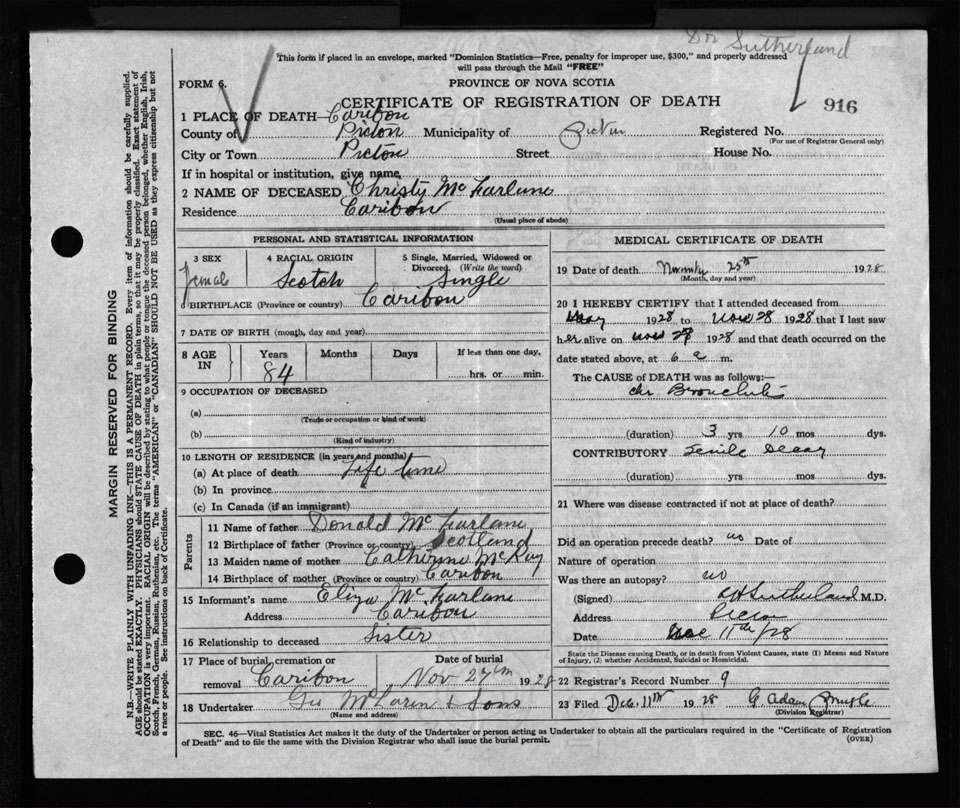 Dr Sutherland
This form if placed in an envelope, marked "Dominion Statistics—Free, penalty for improper use, $300," and properly addressed
will pass through the Mail "FREE"
FORM 6.
PROVINCE OF NOVA SCOTIA
CERTIFICATE OF REGISTRATION OF DEATH
916
1 PLACE OF DEATH—Caribou
County of Pictou Municipality of Pictou Registered No.
(For use of Registrar General only)
City or Town Pictou Street House No.
If in hospital or institution, give name
2 NAME OF DECEASED Christy McFarlane
Residence Caribou
(Usual place of abode)
PERSONAL AND STATISTICAL INFORMATION
3 SEX 4 RACIAL ORIGIN 5 Single, Married, Widowed or
Divorced. (Write the word)
Female Scotch Single
6 BIRTHPLACE (Province or country) Caribou
7 DATE OF BIRTH (month, day and year)
8 AGE IN Years Months Days If less than one day,
84 hrs. or min.
9 OCCUPATION OF DECEASED
(a)
(Trade or occupation or kind of work)
(b)
(Kind of industry)
10 LENGTH OF RESIDENCE (in years and months)
(a) At place of death Life time
(b) In province
(c) In Canada (if an immigrant)
Parents
11 Name of father Donald McFarlane
12 Birthplace of father (Province or country) Scotland
13 Maiden name of mother Catherine McKay
14 Birthplace of mother (Province or country) Caribou
15 Informant's name Eliza McFarlane
Address Caribou
16 Relationship to deceased Sister
17 Place of burial, cremation or removal Caribou Date of burial Nov 27th 1928
18 Undertaker Geo McLaren & Sons
(Name and address)
MEDICAL CERTIFICATE OF DEATH
19 Date of death 25th 1928
(Month, day and year)
20 I HEREBY CERTIFY that I attended deceased from
May 1928 to Nov 28 1928 that I last saw
her alive on Nov 28 1928 and that death occurred on the
date stated above, at 6 a m.
The CAUSE of DEATH was as follows:—
Chr Bronchitis
(duration) 3 yrs 10 mos dys.
CONTRIBUTORY Senile Decay
(duration) yrs mos dys.
21 Where was disease contracted if not at place of death?
Did an operation precede death? no Date of
Nature of operation
Was there an autopsy? no
(Signed) Sutherland M.D.
Address Pictou
Date Dec 11th/28
State the Disease causing Death, or in death from Violent Causes, state (1) Means and Nature
of Injury, (2) whether Accidental, Suicidal or Homicidal.
22 Registrar's Record Number 9
23 Filed Dec. 11th 1928 G Adam
(Division Registrar)
SEC. 46—Vital Statistics Act makes it the duty of the Undertaker or person acting as Undertaker to obtain all the particulars required in the "Certificate of Registration
of Death" and to file the same with the Division Registrar who shall issue the burial permit.
(OVER)
MARGIN RESERVED FOR BINDING
N.B.—WRITE PLAINLY WITH UNFADING INK—THIS IS A PERMANENT RECORD. Every item of information should be carefully supplied.
AGE should be stated EXACTLY. PHYSICIANS should STATE CAUSE OF DEATH in plain terms, so that it may be properly classified. Exact statement of
OCCUPATION is very important. RACIAL ORIGIN will be described by stating to what people or tongue the deceased person belonged, whether English, Irish,
Scotch, French, German, Russian, Ruthenian, etc. The terms "AMERICAN" or "CANADIAN" SHOULD NOT BE USED as they express citizenship but not
a race or people. See instructions on back of Certificate.